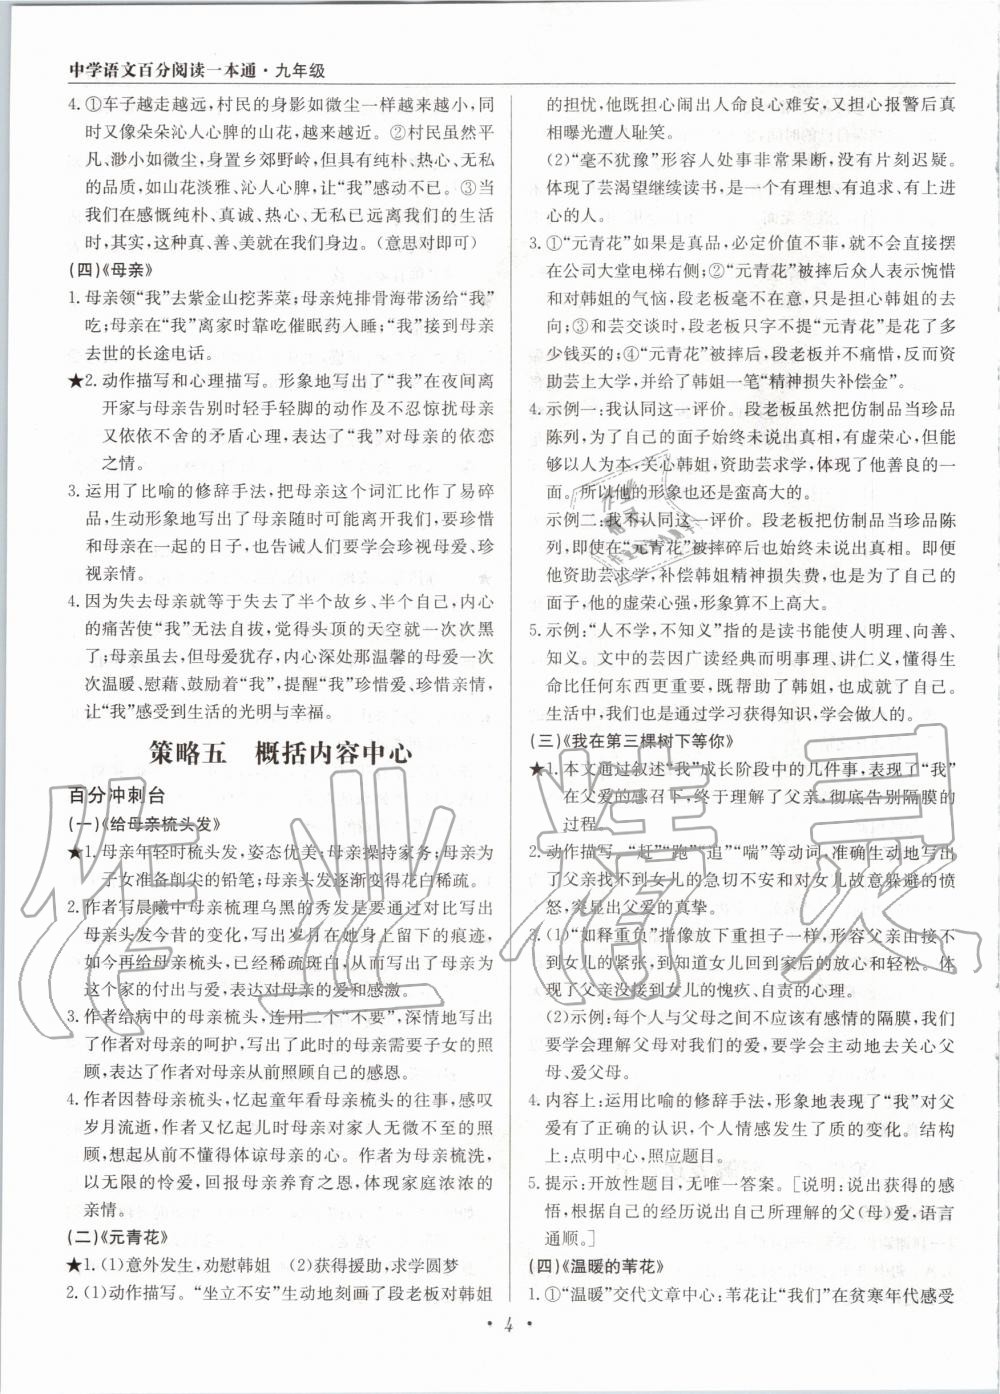 中学语文百分阅读一本通·九年级
4. ①车子越走越远，村民的身影如微尘一样越来越小，同
时又像朵朵沁人心脾的山花，越来越近。②村民虽然平
凡、渺小如微尘，身置乡郊野岭，但具有纯朴、热心、无私
的品质，如山花淡雅、沁人心脾，让“我”感动不已。③当
我们在感慨纯朴、真诚、热心、无私已经远离我们的生活
时，其实，这种真、善、美就在我们身边。（意思对即可）
(四)《母亲》
1. 母亲领“我”去紫金山挖荠菜；母亲炖排骨海带汤给“我”
吃；母亲在“我”离家时靠吃催眠药入睡；“我”接到母亲
去世的长途电话。
★2. 动作描写和心理描写。形象地写出了“我”在夜间离
开家与母亲告别时轻手轻脚的动作及不忍惊扰母亲
又依依不舍的矛盾心理，表达了“我”对母亲的依恋
之情。
3. 运用了比喻的修辞手法，把母亲这个词汇比作了易碎
品，生动形象地写出了母亲随时可能离开我们，要珍惜
和母亲在一起的日子，也告诫人们要学会珍视母爱、珍
视亲情。
4. 因为失去母亲就等于失去了半个故乡、半个自己，内心
的痛苦使“我”无法自拔，觉得头顶的天空就一次次黑
了；母亲虽去，但母爱犹存，内心深处那温馨的母爱一次
次温暖、慰藉、鼓励着“我”，提醒“我”珍惜爱、珍惜亲情，
让“我”感受到生活的光明与幸福。
策略五　概括内容中心
百分冲刺台
(一)《给母亲梳头发》
★1. 母亲年轻时梳头发，姿态优美；母亲操持家务；母亲为
子女准备削尖的铅笔；母亲头发逐渐变得花白稀疏。
2. 作者写晨曦中母亲梳理乌黑的秀发是要通过对比写出
母亲头发今昔的变化，写出岁月在她身上留下的痕迹，
如今再给母亲梳头，已经稀疏斑白，从而表现了母亲为
这个家的付出与爱，表达对母亲的爱和感激。
3. 作者给病中的母亲梳头，连用二个“不要”，深情地写出
了对母亲的呵护，写出了此时的母亲需要子女的照
顾，表达了作者对母亲从前照顾自己的感恩。
4. 作者因替母亲梳头，忆起童年看母亲梳头的往事，感叹
岁月流逝，作者又忆起儿时母亲对家人无微不至的照
顾，多年后终能体谅母亲的辛苦，于是为母亲梳头，
以无限的怜爱，回报母亲养育之恩，体现家庭浓浓的
亲情。
(二)《元青花》
★1. (1)意外发生，劝慰韩姐　(2)获得援助，求学圆梦
2. (1)动作描写。“坐立不安”生动地刻画了段老板对韩姐
的担忧，他既担心闹出人命良心难安，又担心报警后真
相曝光遭人耻笑。
(2)“毫不犹豫”形容人处事非常果断，没有片刻迟疑。
体现了芸渴望继续读书，是一个有理想、有追求、有上进
心的人。
3. ①“元青花”如果是真品，必定价值不菲，就不会直接摆
在公司大堂电梯右侧；②“元青花”被摔后众人表示惋惜
和对韩姐的气恼，段老板毫不在意，只是担心韩姐想不
开；③和芸交谈时，段老板只字不提“元青花”是花了多
少钱买的；④“元青花”被摔后，段老板并不痛惜，反而资
助芸上大学，并给了韩姐一笔“精神损失补偿金”。
4. 示例一：我认同这一评价。段老板虽然把仿制品当珍品
陈列，为了自己的面子始终未说出真相，有虚荣心，但能
够以人为本，关心韩姐，资助芸求学，体现了他善良的一
面。所以他的形象也还是蛮高大的。
示例二：我不认同这一评价。段老板把仿制品当珍品陈
列，即使在“元青花”被摔碎后也始终未说出真相。即便
他资助芸求学，补偿韩姐精神损失费，也是为了自己的
面子，他的虚荣心强，形象算不上高大。
5. 示例：“人不学，不知义”指的是读书能使人明理、向善、
知义。文中的芸因广读经典而明事理、讲仁义，懂得生
命比任何东西更重要，既帮助了韩姐，也成就了自己。
生活中，我们也是通过学习获得知识，学会做人的。
(三)《我在第三棵树下等你》
★1. 本文通过叙述“我”成长阶段中的几件事，表现了“我”
在父爱的感召下，终于理解了父亲，彻底告别隔膜的
过程。
2. 动作描写。“赶”“跑”“追”“喘”等动词，准确生动地写出
了父亲找不到女儿的急切不安和对女儿故意躲避的愤
怒，突显出父爱的真挚。
3. (1)“如释重负”指像放下重担子一样，形容父亲由接不
到女儿的紧张，到知道女儿回到家后的放心和轻松。体
现了父亲没有接到女儿的愧疚、自责的心理。
(2)示例：每个人与父母之间不应该有感情的隔膜，我们
要学会理解父母对我们的爱，要学会主动地去关心父
母、爱父母。
4. 内容上：运用比喻的修辞手法，形象地表现了“我”对父
爱有了正确的认识，个人情感发生了质的变化。结构
上：点明中心，照应题目。
5. 提示：开放性题目，无唯一答案。[说明：说出获得的感
悟，根据自己的经历说出自己所理解的父（母）爱，语言
通顺。]
(四)《温暖的苇花》
1. ①“温暖”交代文章中心：苇花让“我们”在贫寒年代感受
· 4 ·
作业精灵